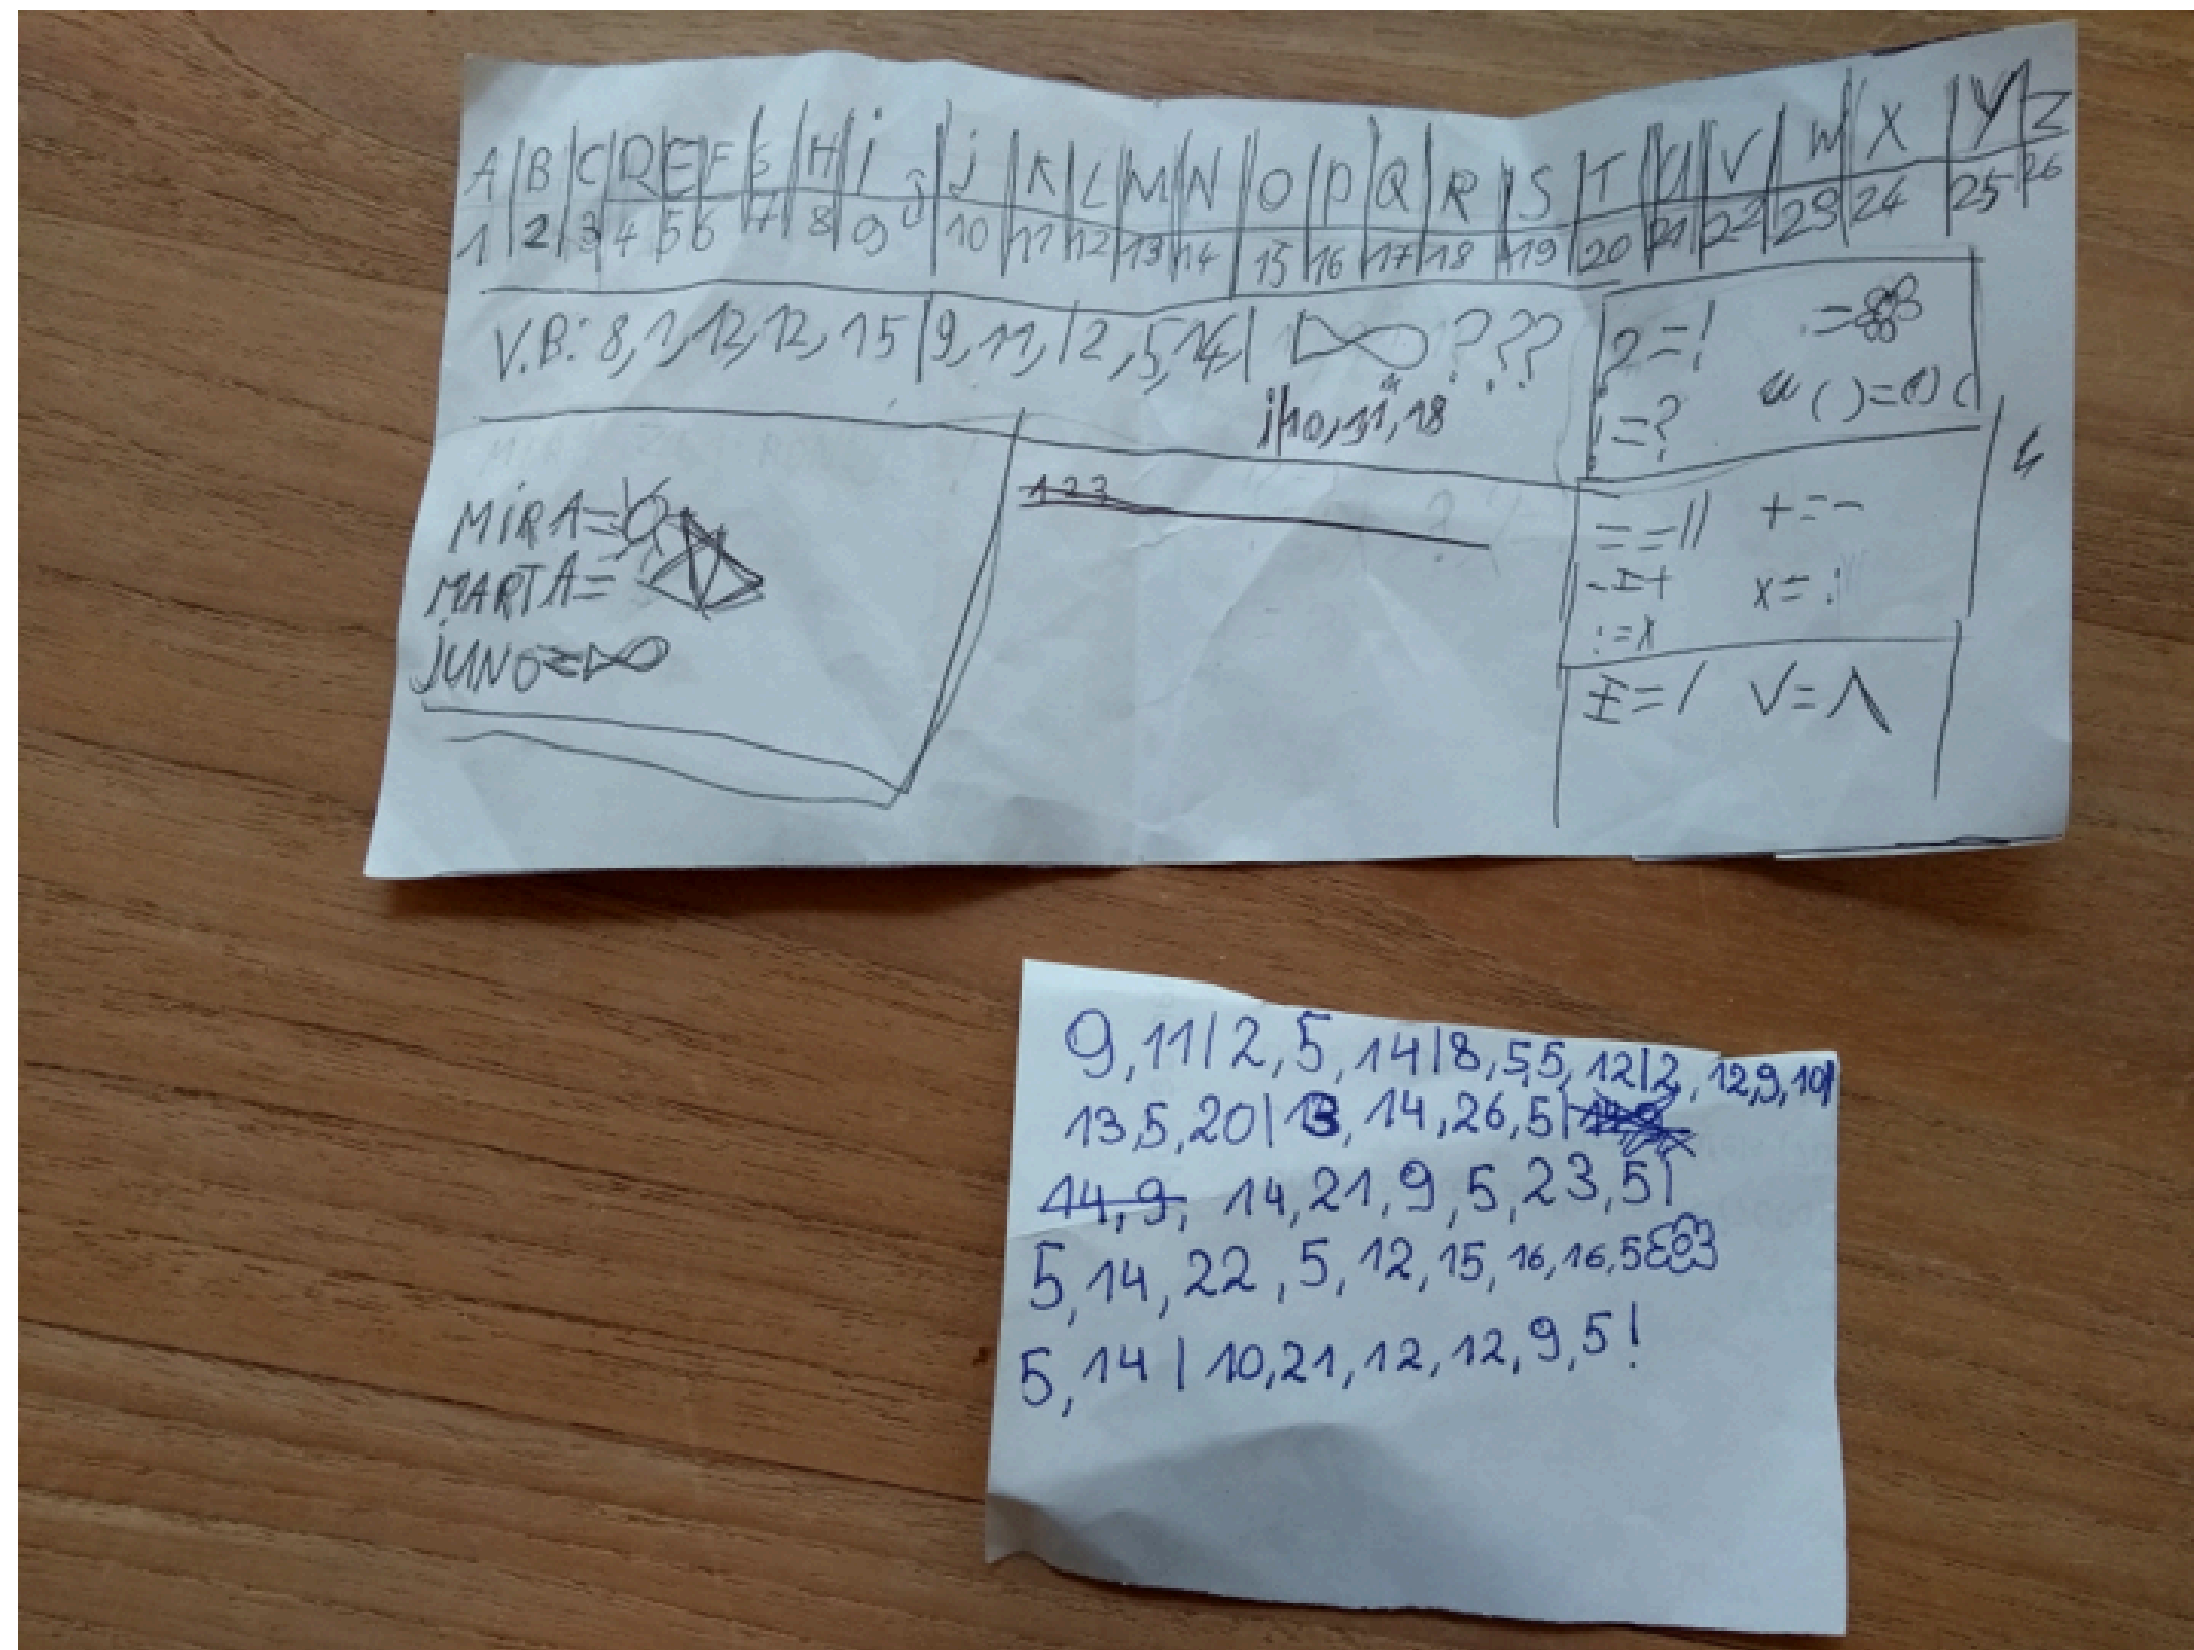 A|B|C|D|E|F|G|H|i|j|K|L|M|N|O|P|Q|R|S|T|U|V|W|X|Y|Z
1|2|3|4|5|6|7|8|9|10|11|12|13|14|15|16|17|18|19|20|21|22|23|24|25|26
V.B: 8,1,12,12,15|9,11,|2,5,14,| ???
j|10,11,18
?=!
!=?
()=
MiRA=
MARTA=
jUNO=
123
= =|| +=-
-=+ x=:
:=x
I=/ V=Λ
9,11|2,5,14|8,5,5,12|2,12,9,10|
13,5,20|13,14,26,5|
14,9, 14,21,9,5,23,5|
5,14,22,5,12,15,16,16,5
5,14|10,21,12,12,9,5!